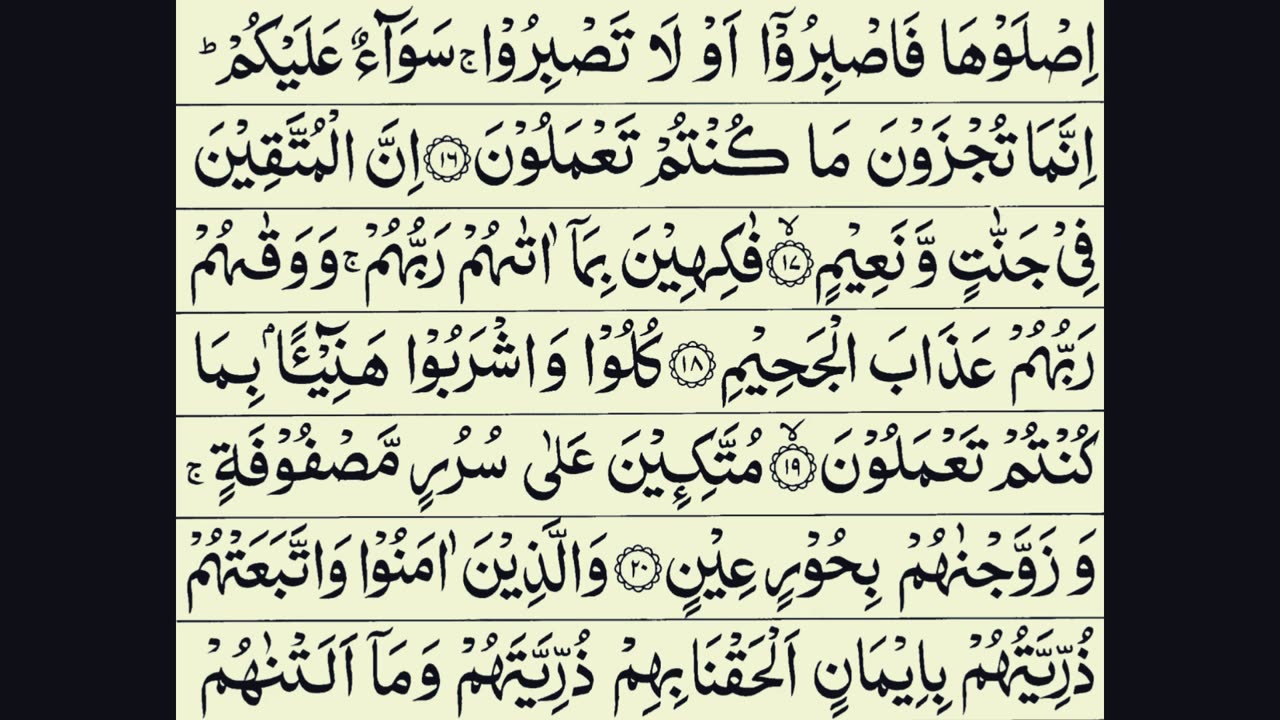 اِصْلَوْهَا فَاصْبِرُوْۤا اَوْ لَا تَصْبِرُوْا ۚ سَوَآءٌ عَلَیْكُمْ ؕ
اِنَّمَا تُجْزَوْنَ مَا كُنْتُمْ تَعْمَلُوْنَ ۝۱۶ اِنَّ الْمُتَّقِیْنَ
فِیْ جَنّٰتٍ وَّ نَعِیْمٍ ۙ۝۱۷ فٰكِهِیْنَ بِمَاۤ اٰتٰىهُمْ رَبُّهُمْ ۚ وَ وَقٰىهُمْ
رَبُّهُمْ عَذَابَ الْجَحِیْمِ ۝۱۸ كُلُوْا وَ اشْرَبُوْا هَنِیْٓـًٔۢا بِمَا
كُنْتُمْ تَعْمَلُوْنَ ۙ۝۱۹ مُتَّكِـِٕیْنَ عَلٰی سُرُرٍ مَّصْفُوْفَةٍ ۚ
وَ زَوَّجْنٰهُمْ بِحُوْرٍ عِیْنٍ ۝۲۰ وَ الَّذِیْنَ اٰمَنُوْا وَ اتَّبَعَتْهُمْ
ذُرِّیَّتُهُمْ بِاِیْمَانٍ اَلْحَقْنَا بِهِمْ ذُرِّیَّتَهُمْ وَ مَاۤ اَلَتْنٰهُمْ